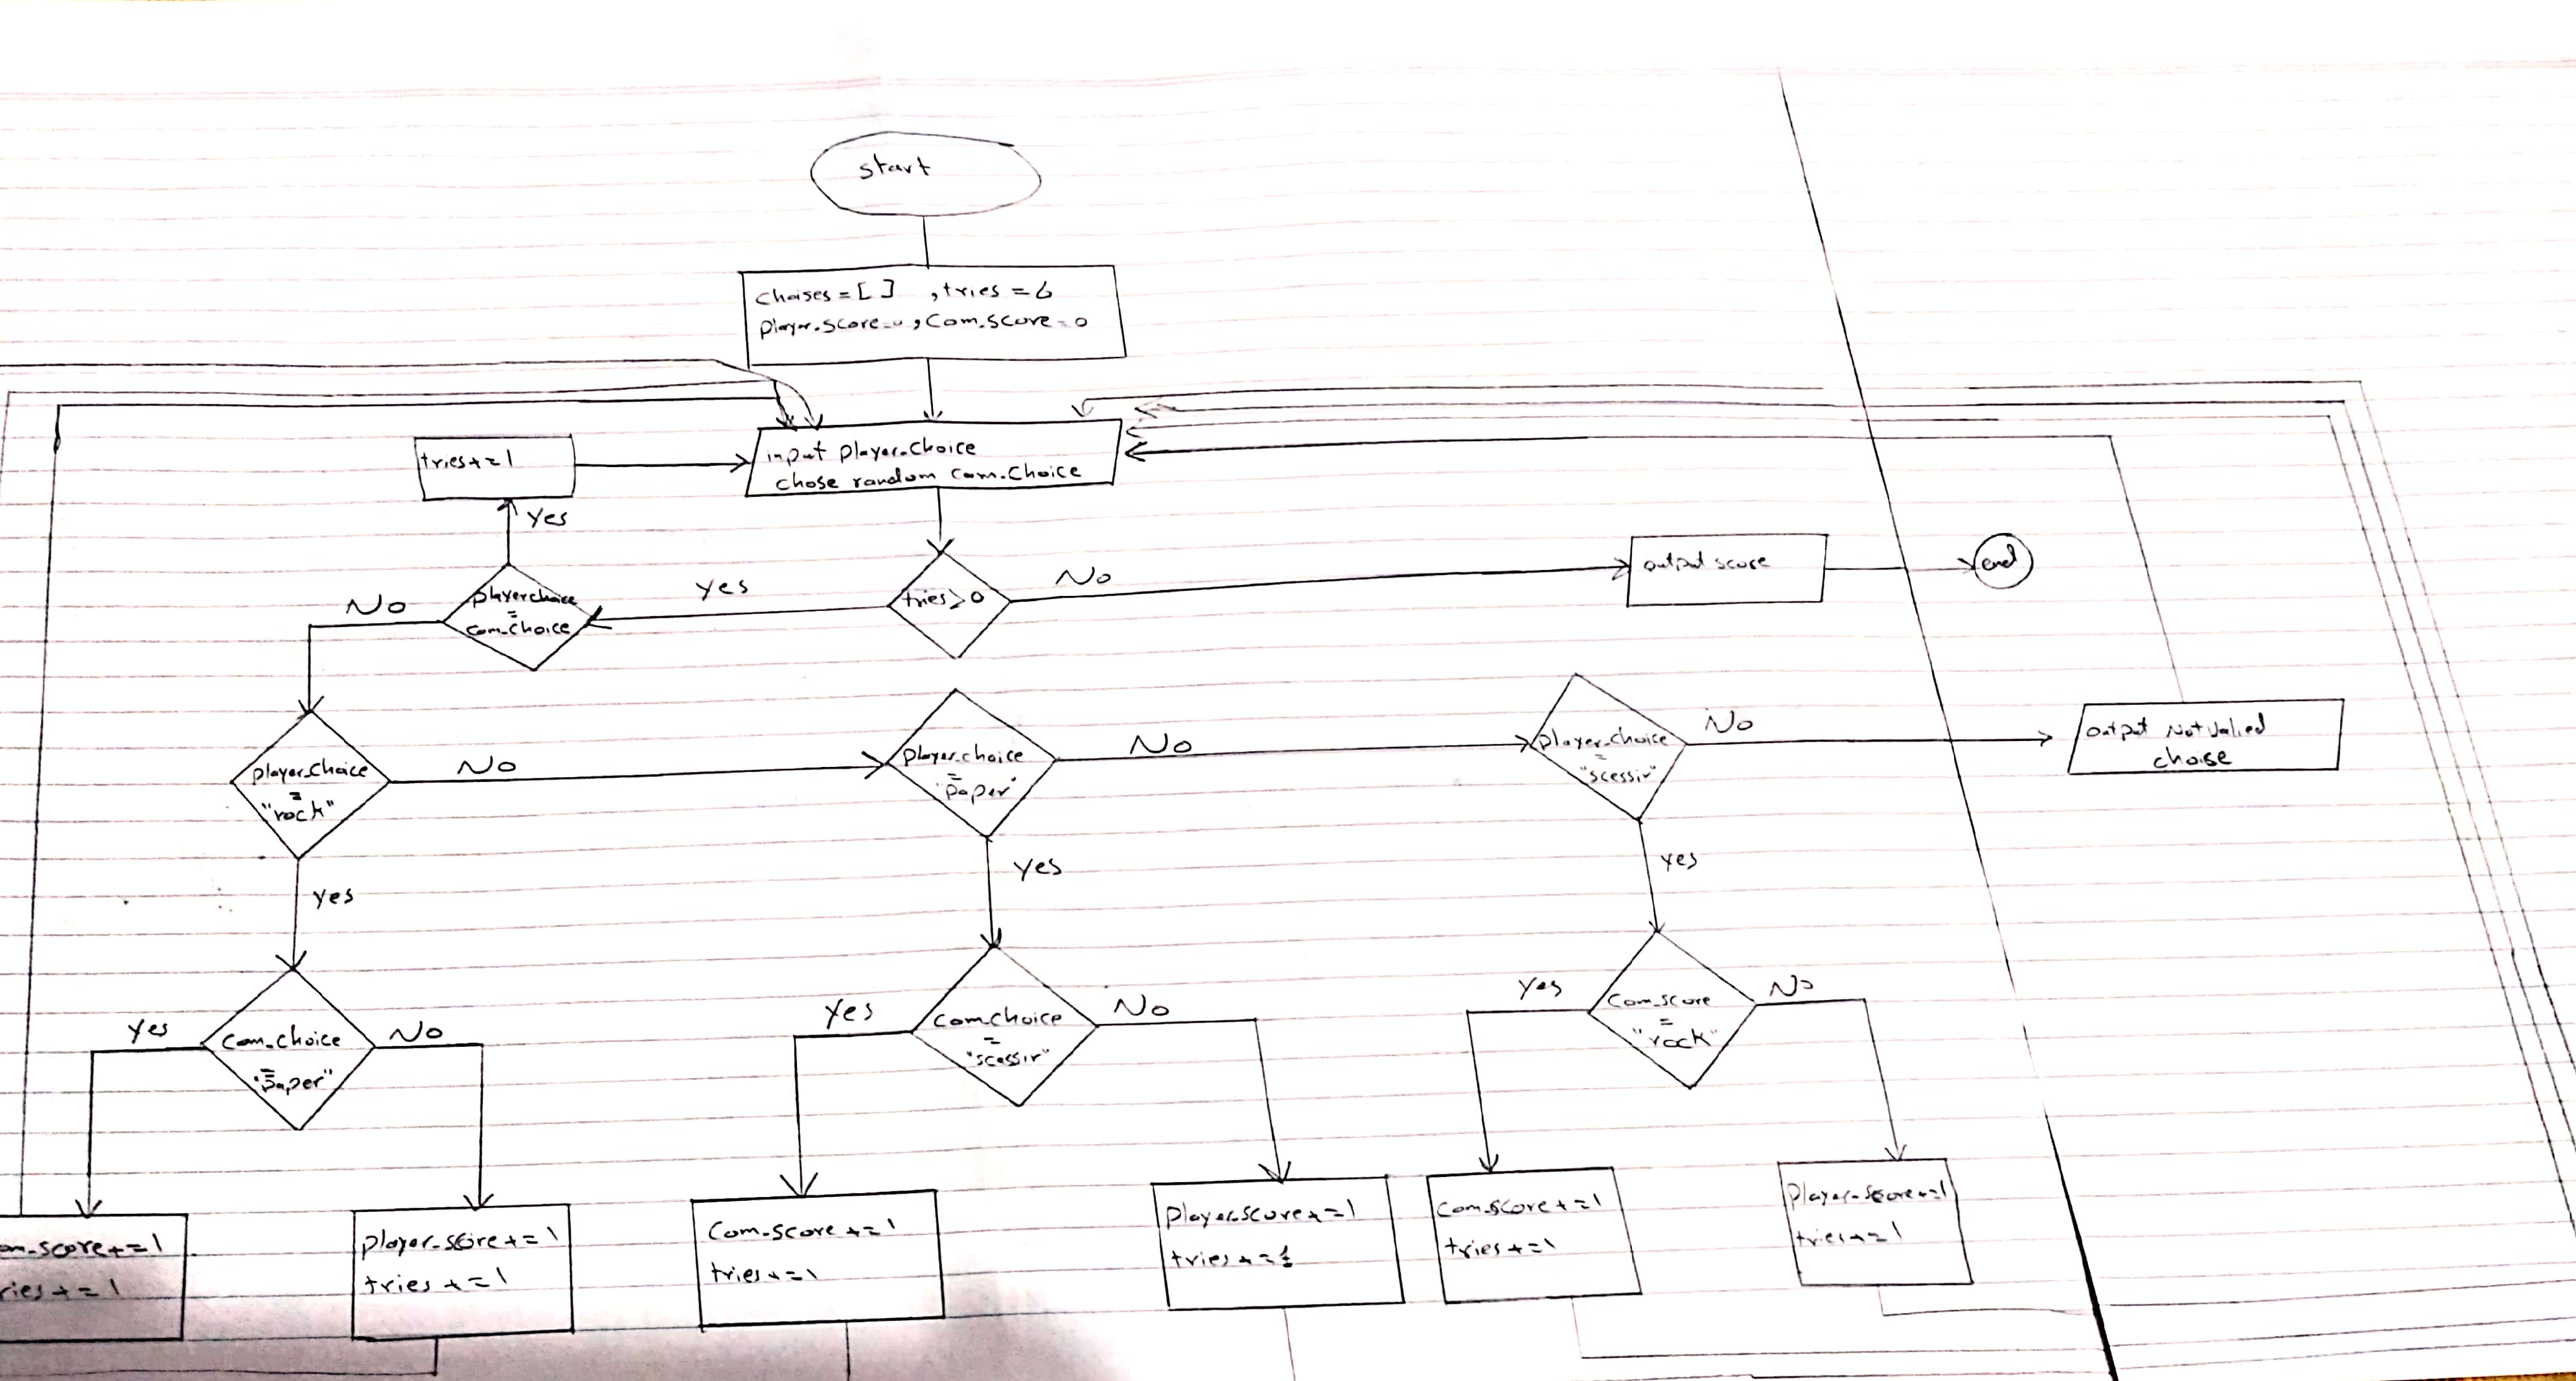 start
choises = [ ] , tries = 6
player.score=0 , Com.score=0
input player.choice
chose random com.Choice
tries+=1
Yes
No
playerchoice
=
com.choice
yes
tries>0
No
output score
end
player.choice
=
"rock"
No
player.choice
=
"paper"
No
player.choice
=
"scessir"
No
output Not valied
choise
yes
yes
yes
yes
Com.choice
=
"paper"
No
yes
Com.choice
=
"scessir"
No
yes
Com.score
=
"rock"
No
om.score+=1
ries+=1
player.score+=1
tries+=1
Com.score+=1
tries+=1
player.score+=1
tries+=1
com.score+=1
tries+=1
player.score+=1
tries+=1